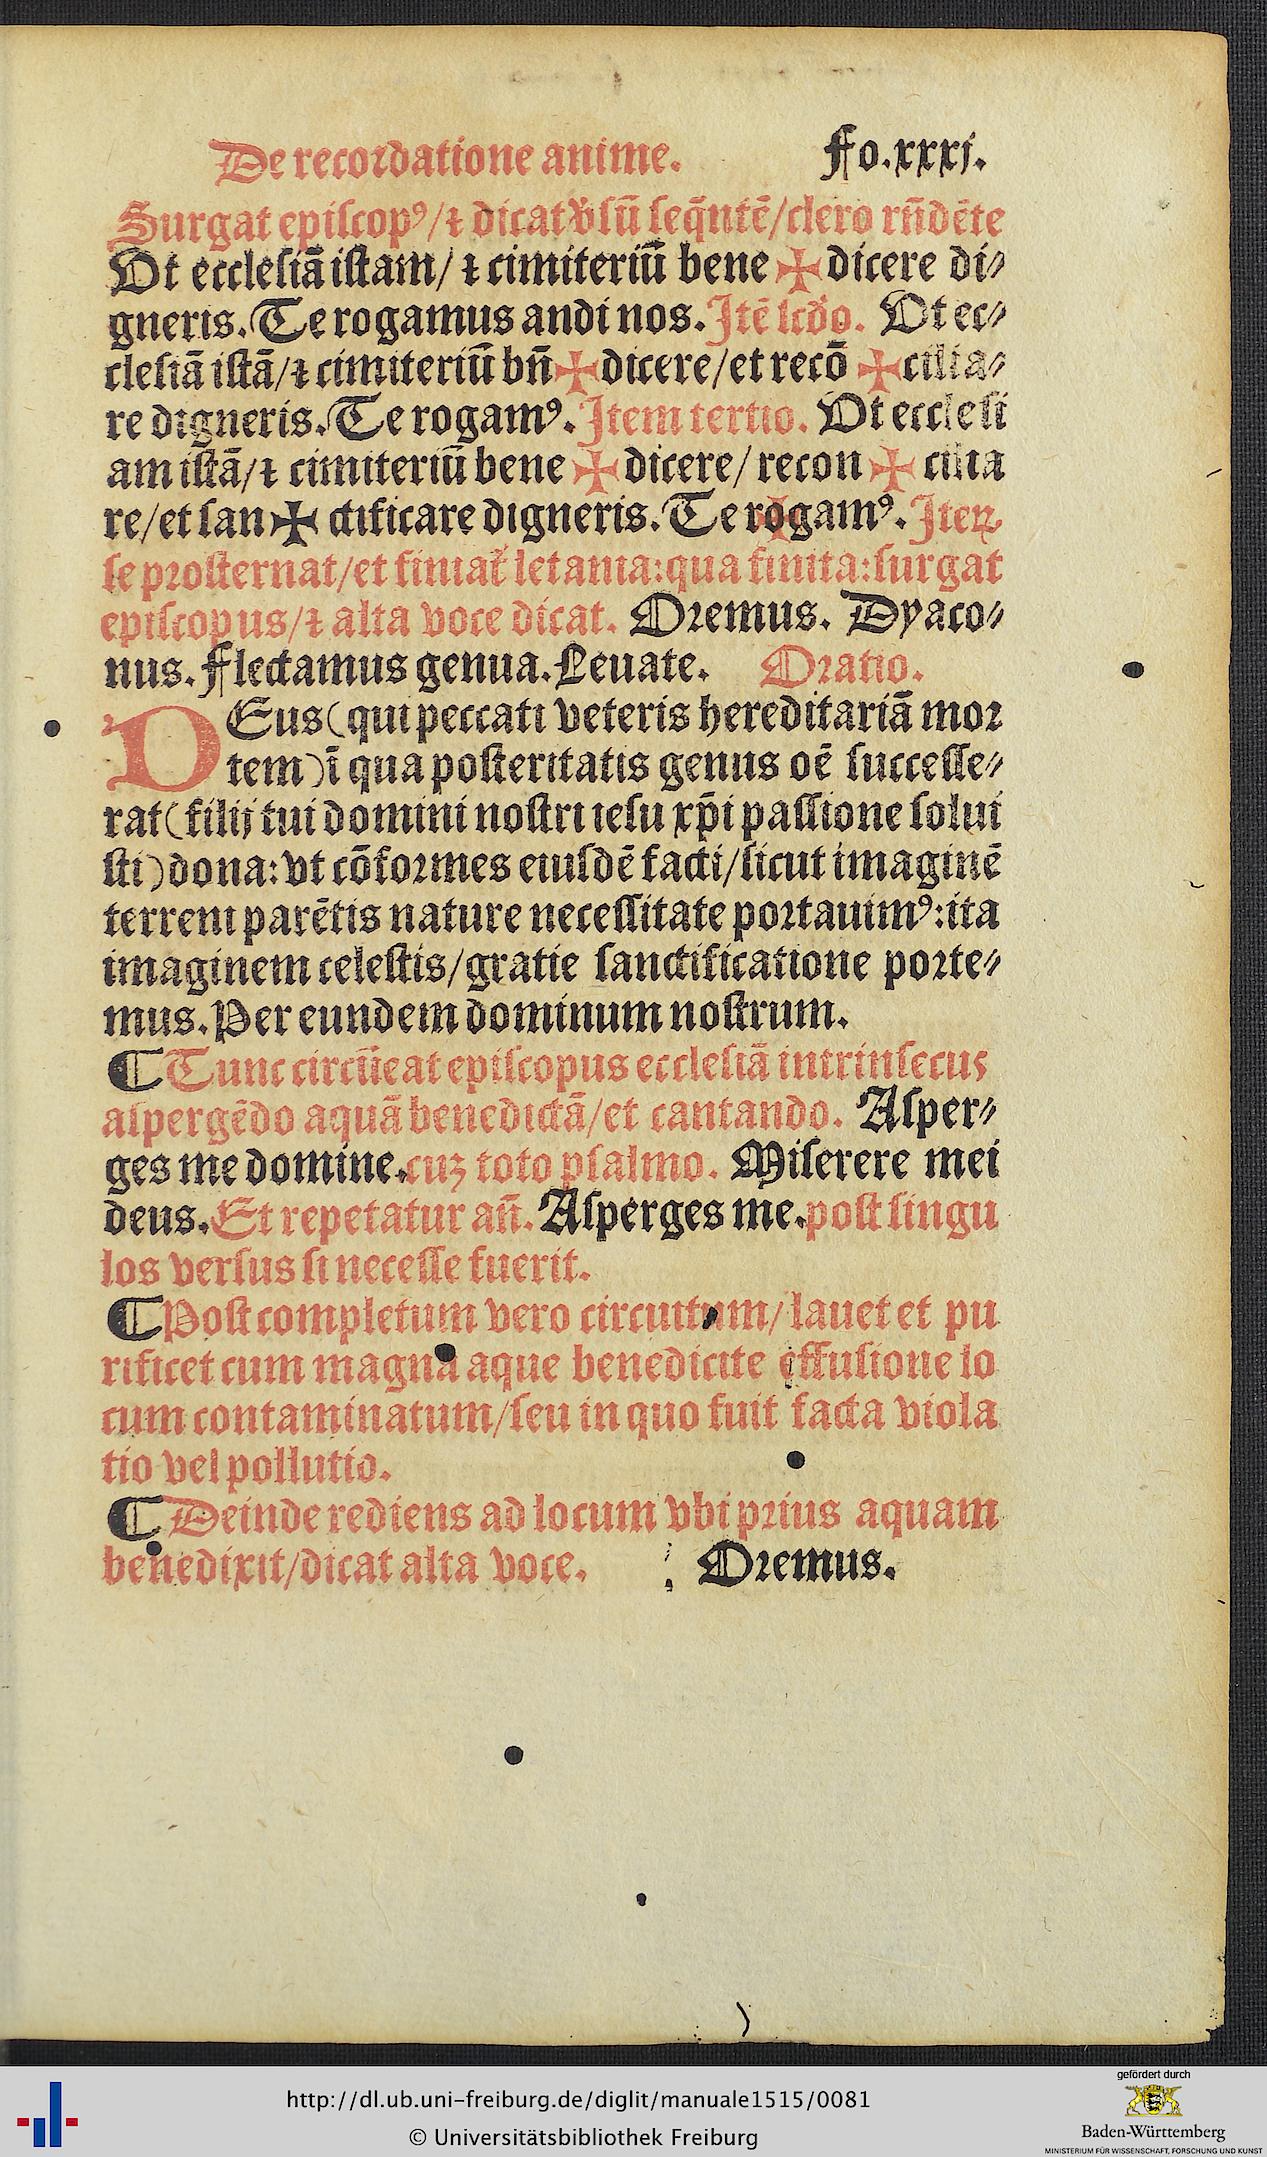 De recordatione anime. Fo.xxxj.
Surgat episcopꝰ/⁊ dicat v̓sū seq̄ntē/clero rn̄dēte
Ut ecclesiā istam/⁊ cimiteriū bene ✠ dicere di⸗
gneris. Te rogamus andi nos. Itē scd̓o. Ut ec⸗
clesiā istā/⁊ cimiteriū bn̄ ✠ dicere/et recō ✠ cilia⸗
re digneris. Te rogamꝰ. Item tertio. Ut ecclesi
am istā/⁊ cimiteriū bene ✠ dicere/recon ✠ cilia
re/et san ✠ ctificare digneris. Te rogamꝰ. Iteꝝ
se prosternat/et finiat᷑ letania:qua finita:surgat
episcopus/⁊ alta voce dicat. Oremus. Dyaco⸗
nus. Flectamus genua. Leuate. Oratio.
DEus(qui peccati veteris hereditariā mor
tem)ī qua posteritatis genus oē successe⸗
rat(filij tui domini nostri iesu xp̄i passione solui
sti)dona:vt cōformes eiusdē facti/sicut imaginē
terreni parētis nature necessitate portauimꝰ:ita
imaginem celestis/gratie sanctificatione porte⸗
mus. Per eundem dominum nostrum.
¶ Tunc circūeat episcopus ecclesiā intrinsecus
aspergēdo aquā benedictā/et cantando. Asper⸗
ges me domine.cuꝫ toto psalmo. Miserere mei
deus. Et repetatur an̄. Asperges me.post singu
los versus si necesse fuerit.
¶ Post completum vero circuitum/lauet et pu
rificet cum magna aque benedicite effusione lo
cum contaminatum/seu in quo fuit facta viola
tio vel pollutio.
¶ Deinde rediens ad locum vbi prius aquam
benedixit/dicat alta voce. Oremus.
http://dl.ub.uni-freiburg.de/diglit/manuale1515/0081
© Universitätsbibliothek Freiburg
gefördert durch
Baden-Württemberg
MINISTERIUM FÜR WISSENSCHAFT, FORSCHUNG UND KUNST